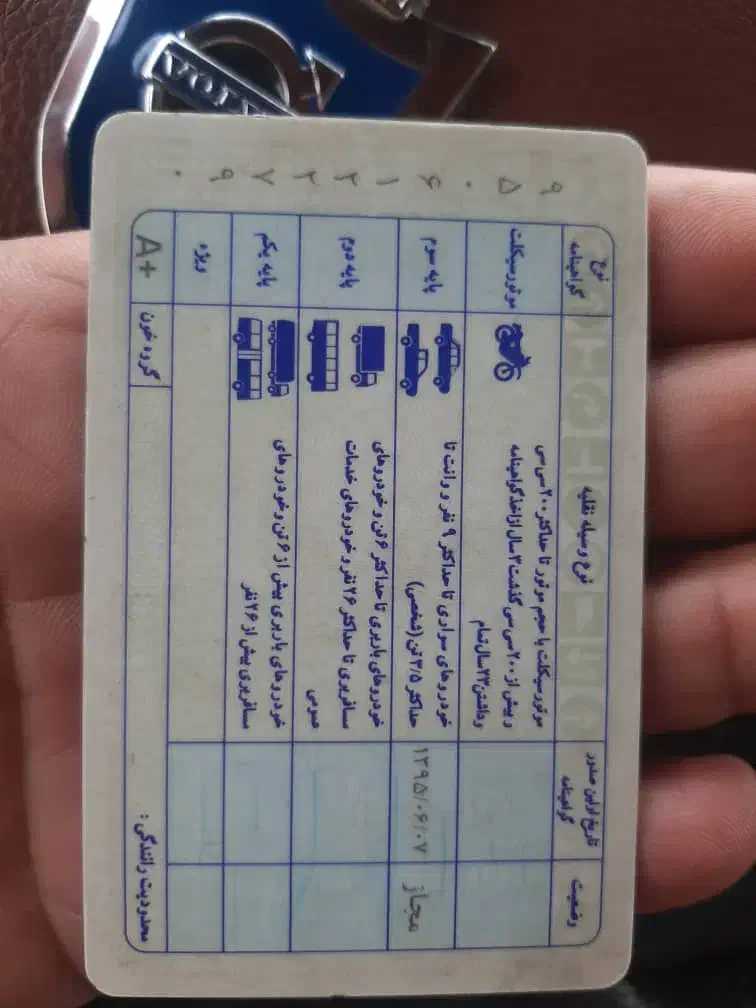 ۹۵۰۶۱۲۲۷۹۰
نوع گواهینامه
نوع وسیله نقلیه
تاریخ اولین صدور گواهینامه
وضعیت
موتورسیکلت
موتورسیکلت با حجم موتور تا حداکثر ۲۰۰ سی سی
و بیش از ۲۰۰ سی سی گذشت ۳ سال از اخذ گواهینامه
و داشتن ۲۳ سال تمام
پایه سوم
خودروهای سواری تا حداکثر ۹ نفر و وانت تا
حداکثر ۳/۵ تن (شخصی)
۱۳۹۵/۰۶/۰۷
مجاز
پایه دوم
خودروهای باربری تا حداکثر ۶ تن و خودروهای
مسافربری تا حداکثر ۲۶ نفر و خودروهای خدمات
عمومی
پایه یکم
خودروهای باربری بیش از ۶ تن و خودروهای
مسافربری بیش از ۲۶ نفر
ویژه
A+
گروه خون
محدودیت رانندگی :